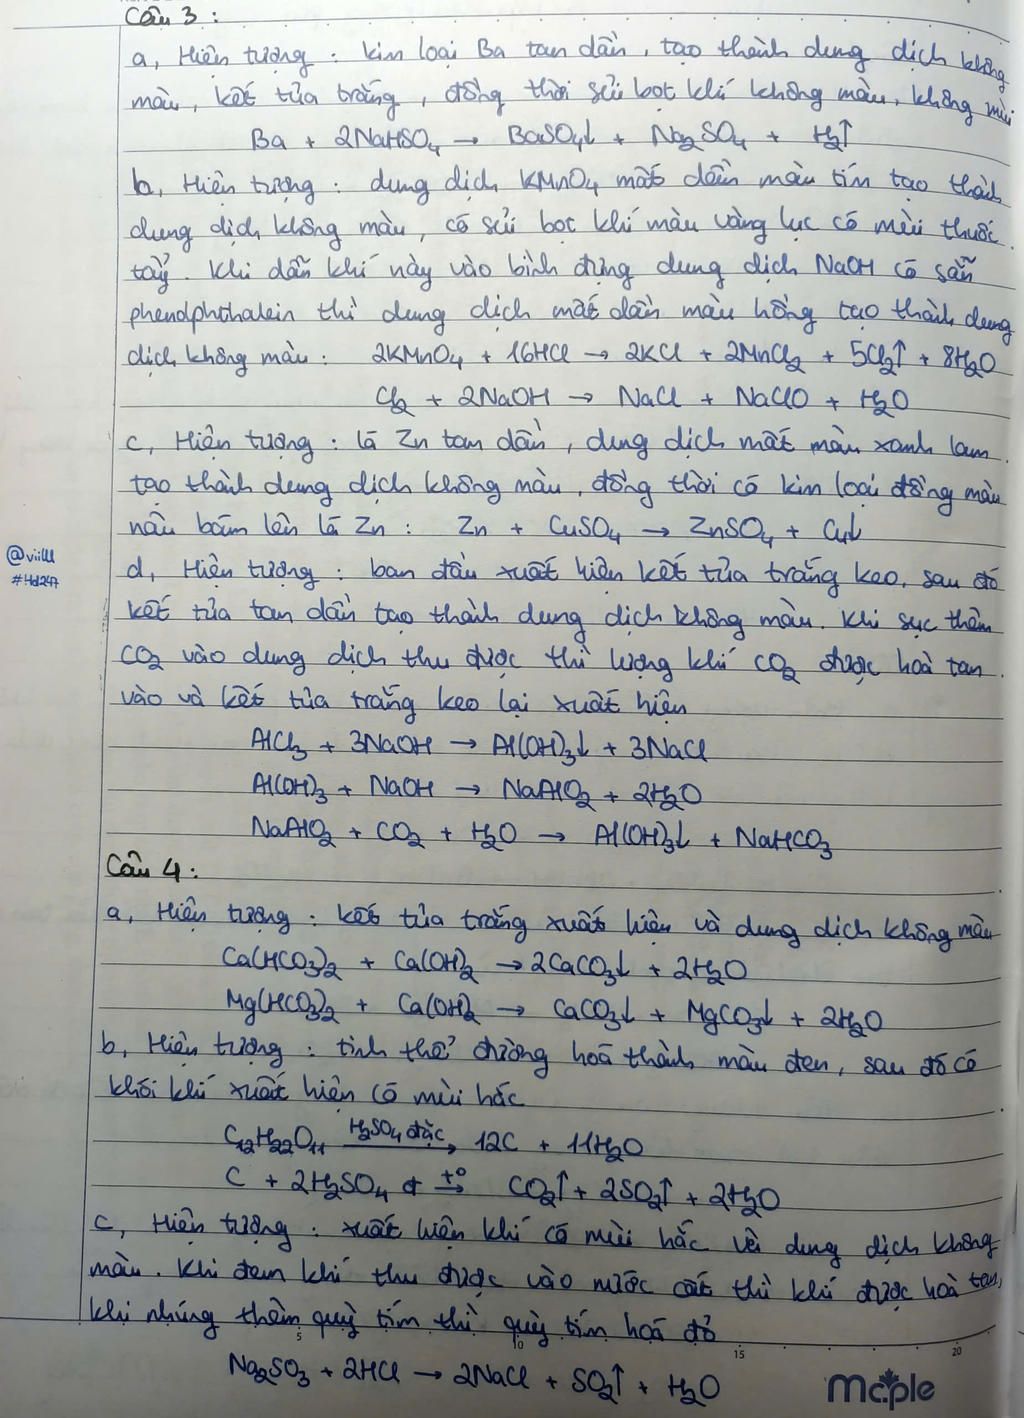 Câu 3 :
a, Hiện tượng : kim loại Ba tan dần, tạo thành dung dịch không
màu, kết tủa trắng, đồng thời sủi bọt khí không màu, không mùi
Ba + 2NaHSO₄ → BaSO₄↓ + Na₂SO₄ + H₂↑
b, Hiện tượng : dung dịch KMnO₄ mất dần màu tím tạo thành
dung dịch không màu, có sủi bọt khí màu vàng lục có mùi thuốc
tẩy. Khi dẫn khí này vào bình đựng dung dịch NaOH có sẵn
phendphthalein thì dung dịch mất dần màu hồng tạo thành dung
dịch không màu : 2KMnO₄ + 16HCl → 2KCl + 2MnCl₂ + 5Cl₂↑ + 8H₂O
Cl₂ + 2NaOH → NaCl + NaClO + H₂O
c, Hiện tượng : lá Zn tan dần, dung dịch mất màu xanh lam
tạo thành dung dịch không màu, đồng thời có kim loại đồng màu
nâu bám lên lá Zn : Zn + CuSO₄ → ZnSO₄ + Cu↓
@viilll
#Hd247
d, Hiện tượng : ban đầu xuất hiện kết tủa trắng keo, sau đó
kết tủa tan dần tạo thành dung dịch không màu. Khi sục thêm
CO₂ vào dung dịch thu được thì lượng khí CO₂ được hoà tan
vào và kết tủa trắng keo lại xuất hiện
AlCl₃ + 3NaOH → Al(OH)₃↓ + 3NaCl
Al(OH)₃ + NaOH → NaAlO₂ + 2H₂O
NaAlO₂ + CO₂ + H₂O → Al(OH)₃↓ + NaHCO₃
Câu 4 :
a, Hiện tượng : kết tủa trắng xuất hiện và dung dịch không màu
Ca(HCO₃)₂ + Ca(OH)₂ → 2CaCO₃↓ + 2H₂O
Mg(HCO₃)₂ + Ca(OH)₂ → CaCO₃↓ + MgCO₃↓ + 2H₂O
b, Hiện tượng : tinh thể đường hoá thành màu đen, sau đó có
khối khí xuất hiện có mùi hắc
C₁₂H₂₂O₁₁ H₂SO₄ đặc→ 12C + 11H₂O
C + 2H₂SO₄ đ t°→ CO₂↑ + 2SO₂↑ + 2H₂O
c, Hiện tượng : xuất hiện khí có mùi hắc và dung dịch không
màu. Khi đem khí thu được vào nước cất thì khí được hoà tan,
khi nhúng thêm quỳ tím thì quỳ tím hoá đỏ
5 10 15 20
Na₂SO₃ + 2HCl → 2NaCl + SO₂↑ + H₂O
mcple